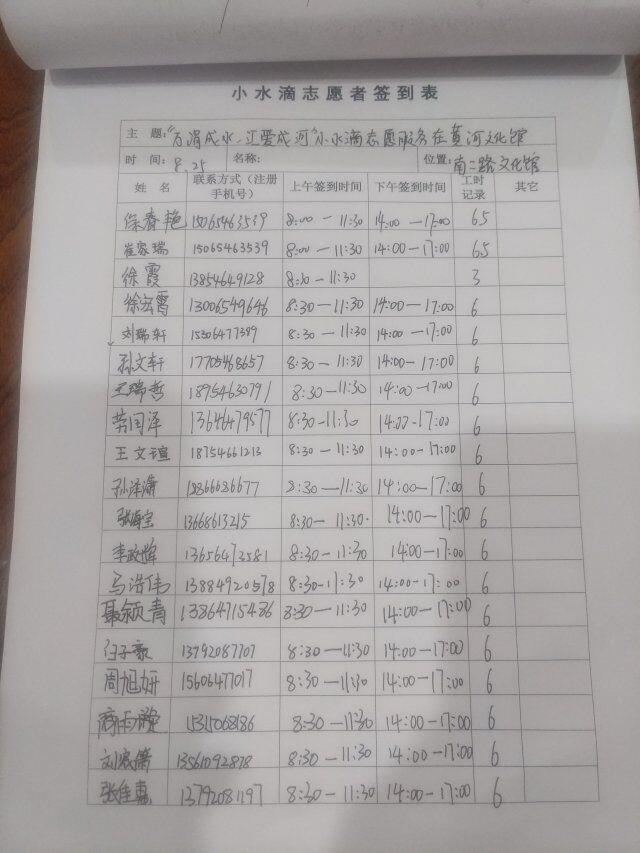 小水滴志愿者签到表
主 题:"百涓成水,汇爱成河"小水滴志愿服务在黄河文化馆
时 间: 8.25 名称: 位置: 南二路文化馆
姓 名 联系方式(注册手机号) 上午签到时间 下午签到时间 工时记录 其它
徐春艳 15065463539 8:00-11:30 14:00-17:00 6.5
崔家瑞 15065463539 8:00-11:30 14:00-17:00 6.5
徐霞 13854649128 8:30-11:30 3
徐宏霄 13006549646 8:30-11:30 14:00-17:00 6
刘瑞轩 15306477389 8:30-11:30 14:00-17:00 6
孙文轩 17705468657 8:30-11:30 14:00-17:00 6
王瑞哲 18954630791 8:30-11:30 14:00-17:00 6
13646479577 8:30-11:30 14:00-17:00 6
王文瑄 18754661213 8:30-11:30 14:00-17:00 6
孙泽潇 18866636677 8:30-11:30 14:00-17:00 6
张海宝 13668613215 8:30-11:30 14:00-17:00 6
李政辉 13656472581 8:30-11:30 14:00-17:00 6
马浩伟 13884920578 8:30-11:30 14:00-17:00 6
聂颍青 13864715486 8:30-11:30 14:00-17:00 6
子豪 13792087707 8:30-11:30 14:00-17:00 6
周旭妍 15606477017 8:30-11:30 14:00-17:00 6
商雨 15315068186 8:30-11:30 14:00-17:00 6
刘宸箫 13561092878 8:30-11:30 14:00-17:00 6
张佳嘉 13792081197 8:30-11:30 14:00-17:00 6